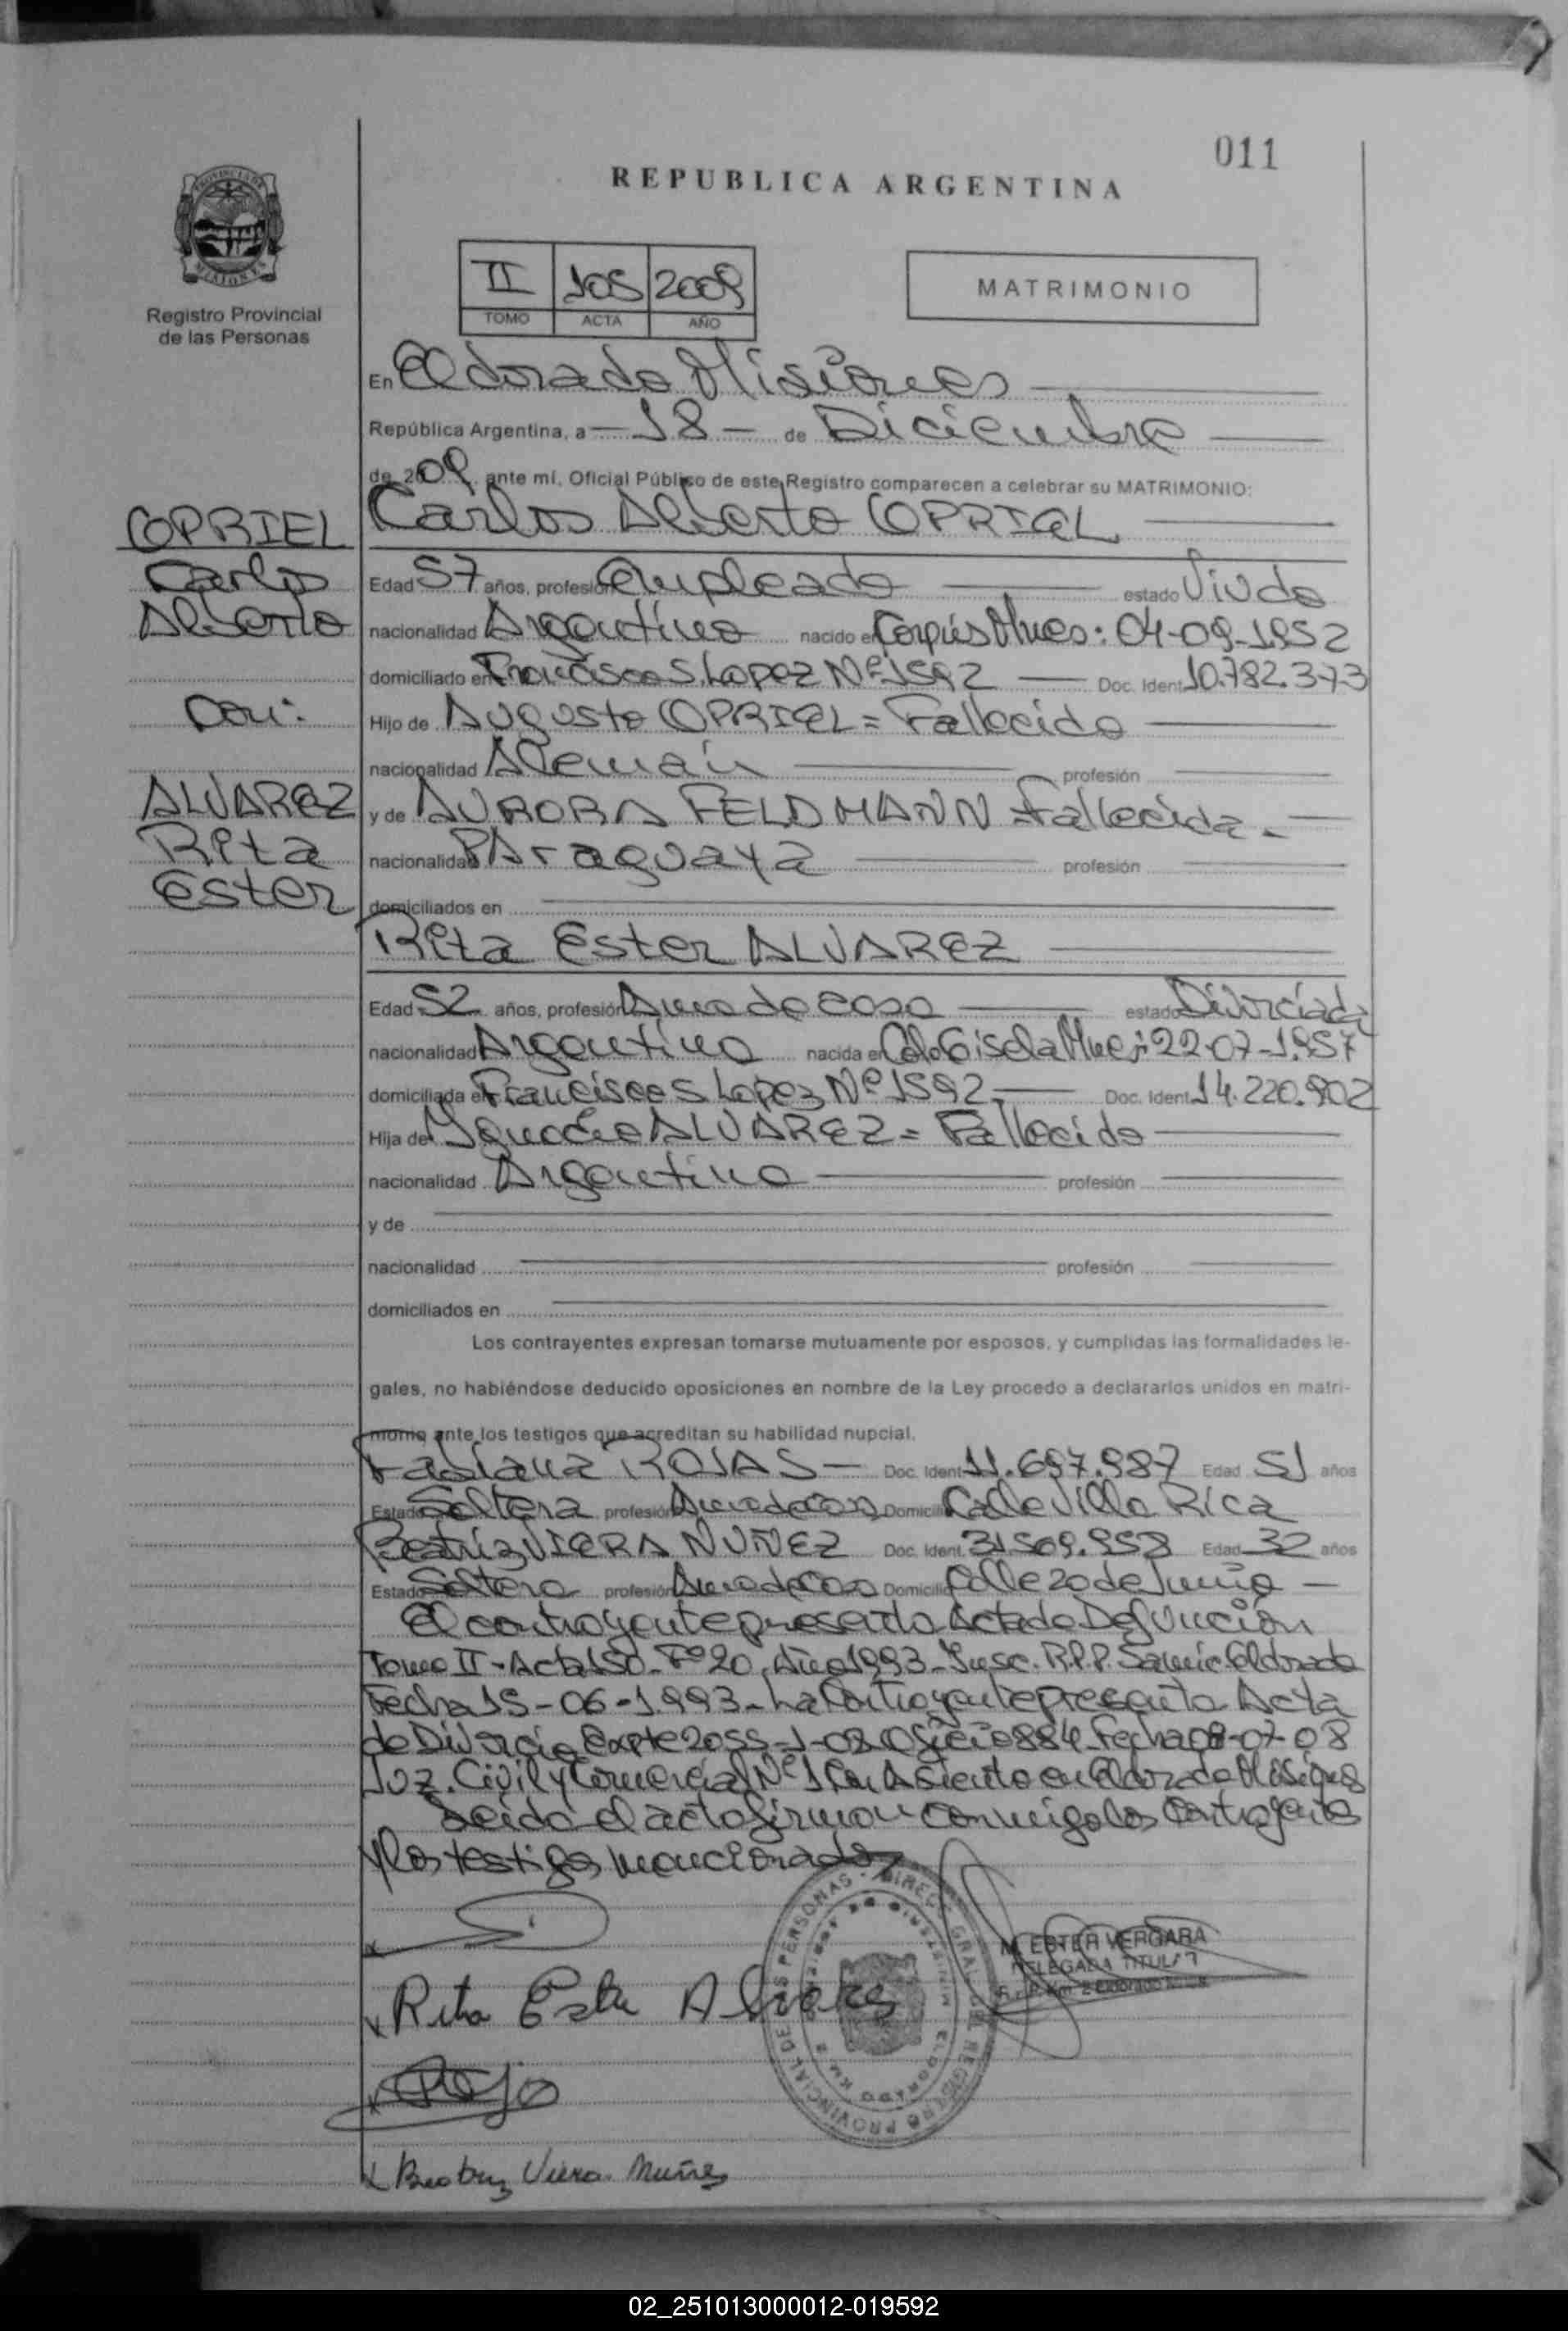 011
REPUBLICA ARGENTINA
PROVINCIA DE MISIONES
Registro Provincial
de las Personas
II 105 2009
TOMO ACTA AÑO
MATRIMONIO
En Eldorado Misiones
República Argentina, a 18 de Diciembre
de 2009 ante mí, Oficial Público de este Registro comparecen a celebrar su MATRIMONIO:
COPRIEL
Carlos
Alberto
Con:
ALVAREZ
Rita
Ester
Carlos Alberto COPRIEL
Edad 57 años, profesión Empleado estado Viudo
nacionalidad Argentino nacido en Corpus Mnes: 04-09-1952
domiciliado en Francisco S. Lopez Nº 1592 Doc. Ident. 10.782.373
Hijo de Augusto COPRIEL = Fallecido
nacionalidad Alemán profesión
y de AURORA FELDMANN = Fallecida
nacionalidad PAraguaya profesión
domiciliados en
Rita Ester ALVAREZ
Edad 52 años, profesión Ama de casa estado Divorciada
nacionalidad Argentina nacida en Col. Gisela Mnes: 22-07-1957
domiciliada en Francisco S Lopez Nº 1592 Doc. Ident. 14.220.902
Hija de Ygnacio ALVAREZ = Fallecido
nacionalidad Argentino profesión
y de
nacionalidad profesión
domiciliados en
Los contrayentes expresan tomarse mutuamente por esposos, y cumplidas las formalidades le-
gales, no habiéndose deducido oposiciones en nombre de la Ley procedo a declararlos unidos en matri-
monio ante los testigos que acreditan su habilidad nupcial.
Fabiana ROJAS Doc. Ident. 11.697.987 Edad 51 años
Estado Soltera profesión Ama de Casa Domicilio Calle Villa Rica
Beatriz VIERA NUÑEZ Doc. Ident. 31.569.958 Edad 32 años
Estado Soltera profesión Ama de Casa Domicilio Calle 20 de Junio
El contrayente presento Acta de Defunción
Tomo II - Acta 150 - Fº 20 Año 1993 - Insc. R.P.P. Samic Eldorado
Fecha 15-06-1.993 - La Contrayente presento Acta
de Divorcio Expte 2055-1-08 Oficio 884 Fecha 08-07-08
Juz. Civil y Comercial Nº 1 Con Asiento en Eldorado Misiones
Leída el acta firman conmigo los Contrayentes
y los testigos mencionados
M. ESTER VERGARA
DELEGADA TITULAR
Rita Ester Alvarez
Rojas
Beatriz Viera Nuñez
02_251013000012-019592